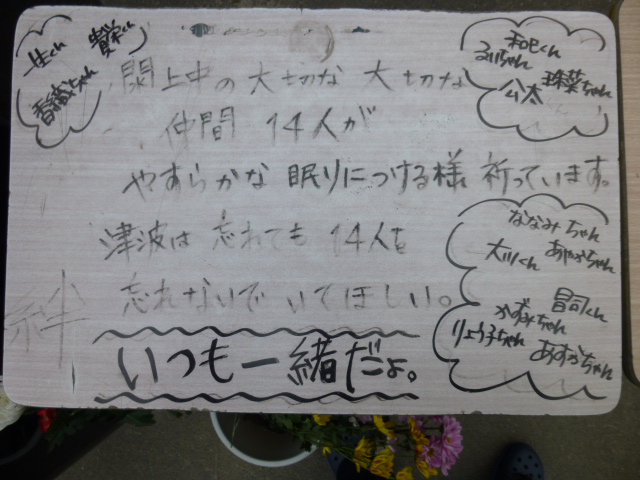 一生くん
貴栄くん
香織ちゃん
和己くん
るいちゃん
珠菜ちゃん
公太
閖上中の大切な 大切な
仲間 14人が
やすらかな 眠りにつける様 祈っています。
津波は 忘れても 14人を
忘れないで いてほしい。
絆
いつも一緒だよ。
ななみちゃん
大川くん
あやかちゃん
昌司くん
かずみちゃん
りょう子ちゃん
あすかちゃん